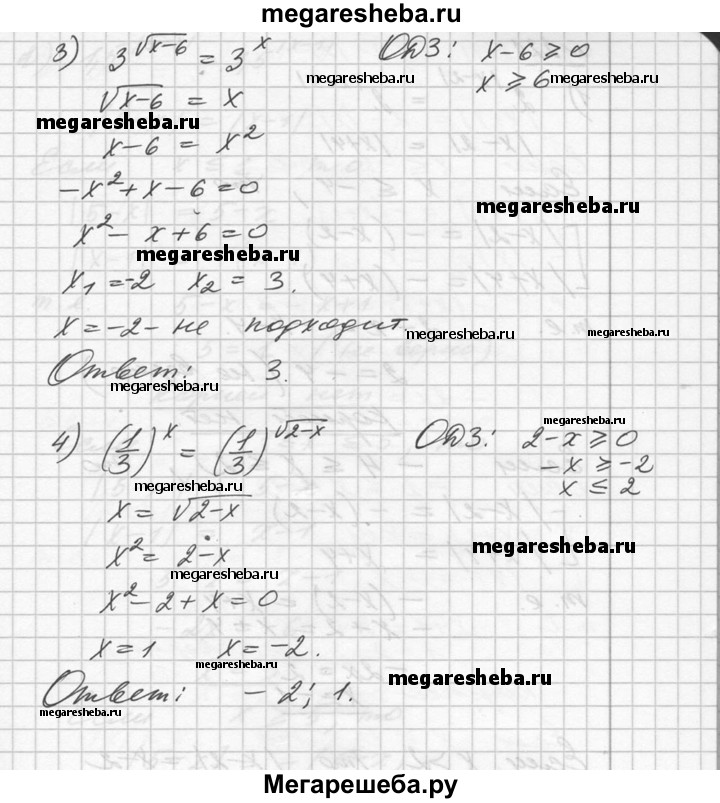 megaresheba.ru
3) 3^√(x-6) = 3^x ОДЗ: x-6 ≥ 0
megaresheba.ru x ≥ 6 megaresheba.ru
√(x-6) = x
megaresheba.ru
x-6 = x²
-x²+x-6=0
megaresheba.ru
x²-x+6=0
megaresheba.ru
x₁=-2 x₂=3.
x=-2- не подходит.
megaresheba.ru megaresheba.ru
Ответ: 3.
megaresheba.ru
megaresheba.ru
4) (1/3)^x = (1/3)^√(2-x) ОДЗ: 2-x ≥ 0
-x ≥ -2
megaresheba.ru x ≤ 2
x = √(2-x)
x² = 2-x megaresheba.ru
megaresheba.ru
x²-2+x=0
x=1 x=-2.
megaresheba.ru
Ответ: -2; 1. megaresheba.ru
megaresheba.ru
Мегарешеба.ру